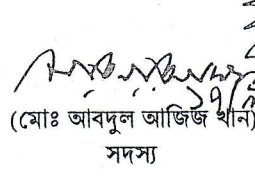 (মোঃ আবদুল আজিজ খান)
সদস্য